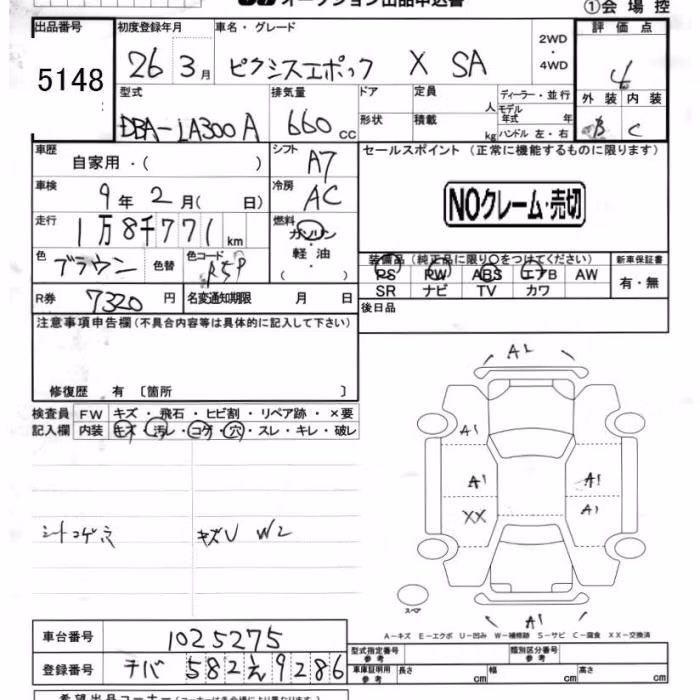 オークション出品申込書 ①会場控
出品番号 初度登録年月 車名・グレード 評価点
5148 26 3月 ピクシスエポック X SA 2WD・4WD 4
型式 排気量 ドア 定員 人 ディーラー・並行 外装 内装
DBA-LA300A 660cc 形状 積載 kg モデル年式 年 ハンドル 左・右 B C
車歴 自家用・( ) シフト A7 セールスポイント (正常に機能するものに限ります)
車検 9年2月( 日) 冷房 AC NOクレーム・売切
走行 1万8千771km 燃料 ガソリン・軽油 ( )
色 ブラウン 色替 色コード R59 装備品 (純正品に限り○をつけてください) 新車保証書
PS PW ABS エアB AW 有・無
SR ナビ TV カワ
R券 7320円 名変通知期限 月 日 後日品
注意事項申告欄(不具合内容等は具体的に記入して下さい)
修復歴 有 〔箇所 〕
検査員 FW キズ・飛石・ヒビ割・リペア跡・×要
記入欄 内装 キズ・汚レ・コゲ・穴・スレ・キレ・破レ
A2
A1
A1 A1
XX A1
シートコゲ穴 キズU W2
スペア
A1
A-キズ E-エクボ U-凹み W-補修跡 S-サビ C-腐食 XX-交換済
車台番号 1025275
型式指定番号 参考 類別区分番号 参考
登録番号 チバ 582え9286 車庫証明用 参考 長さ cm 幅 cm 高さ cm
希望出品コーナー